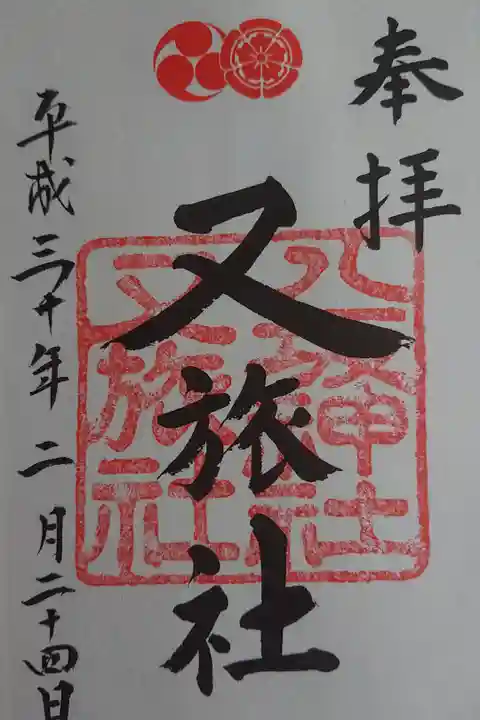 奉拝
又旅社
八坂神社
又旅社
平成三十年二月二十四日